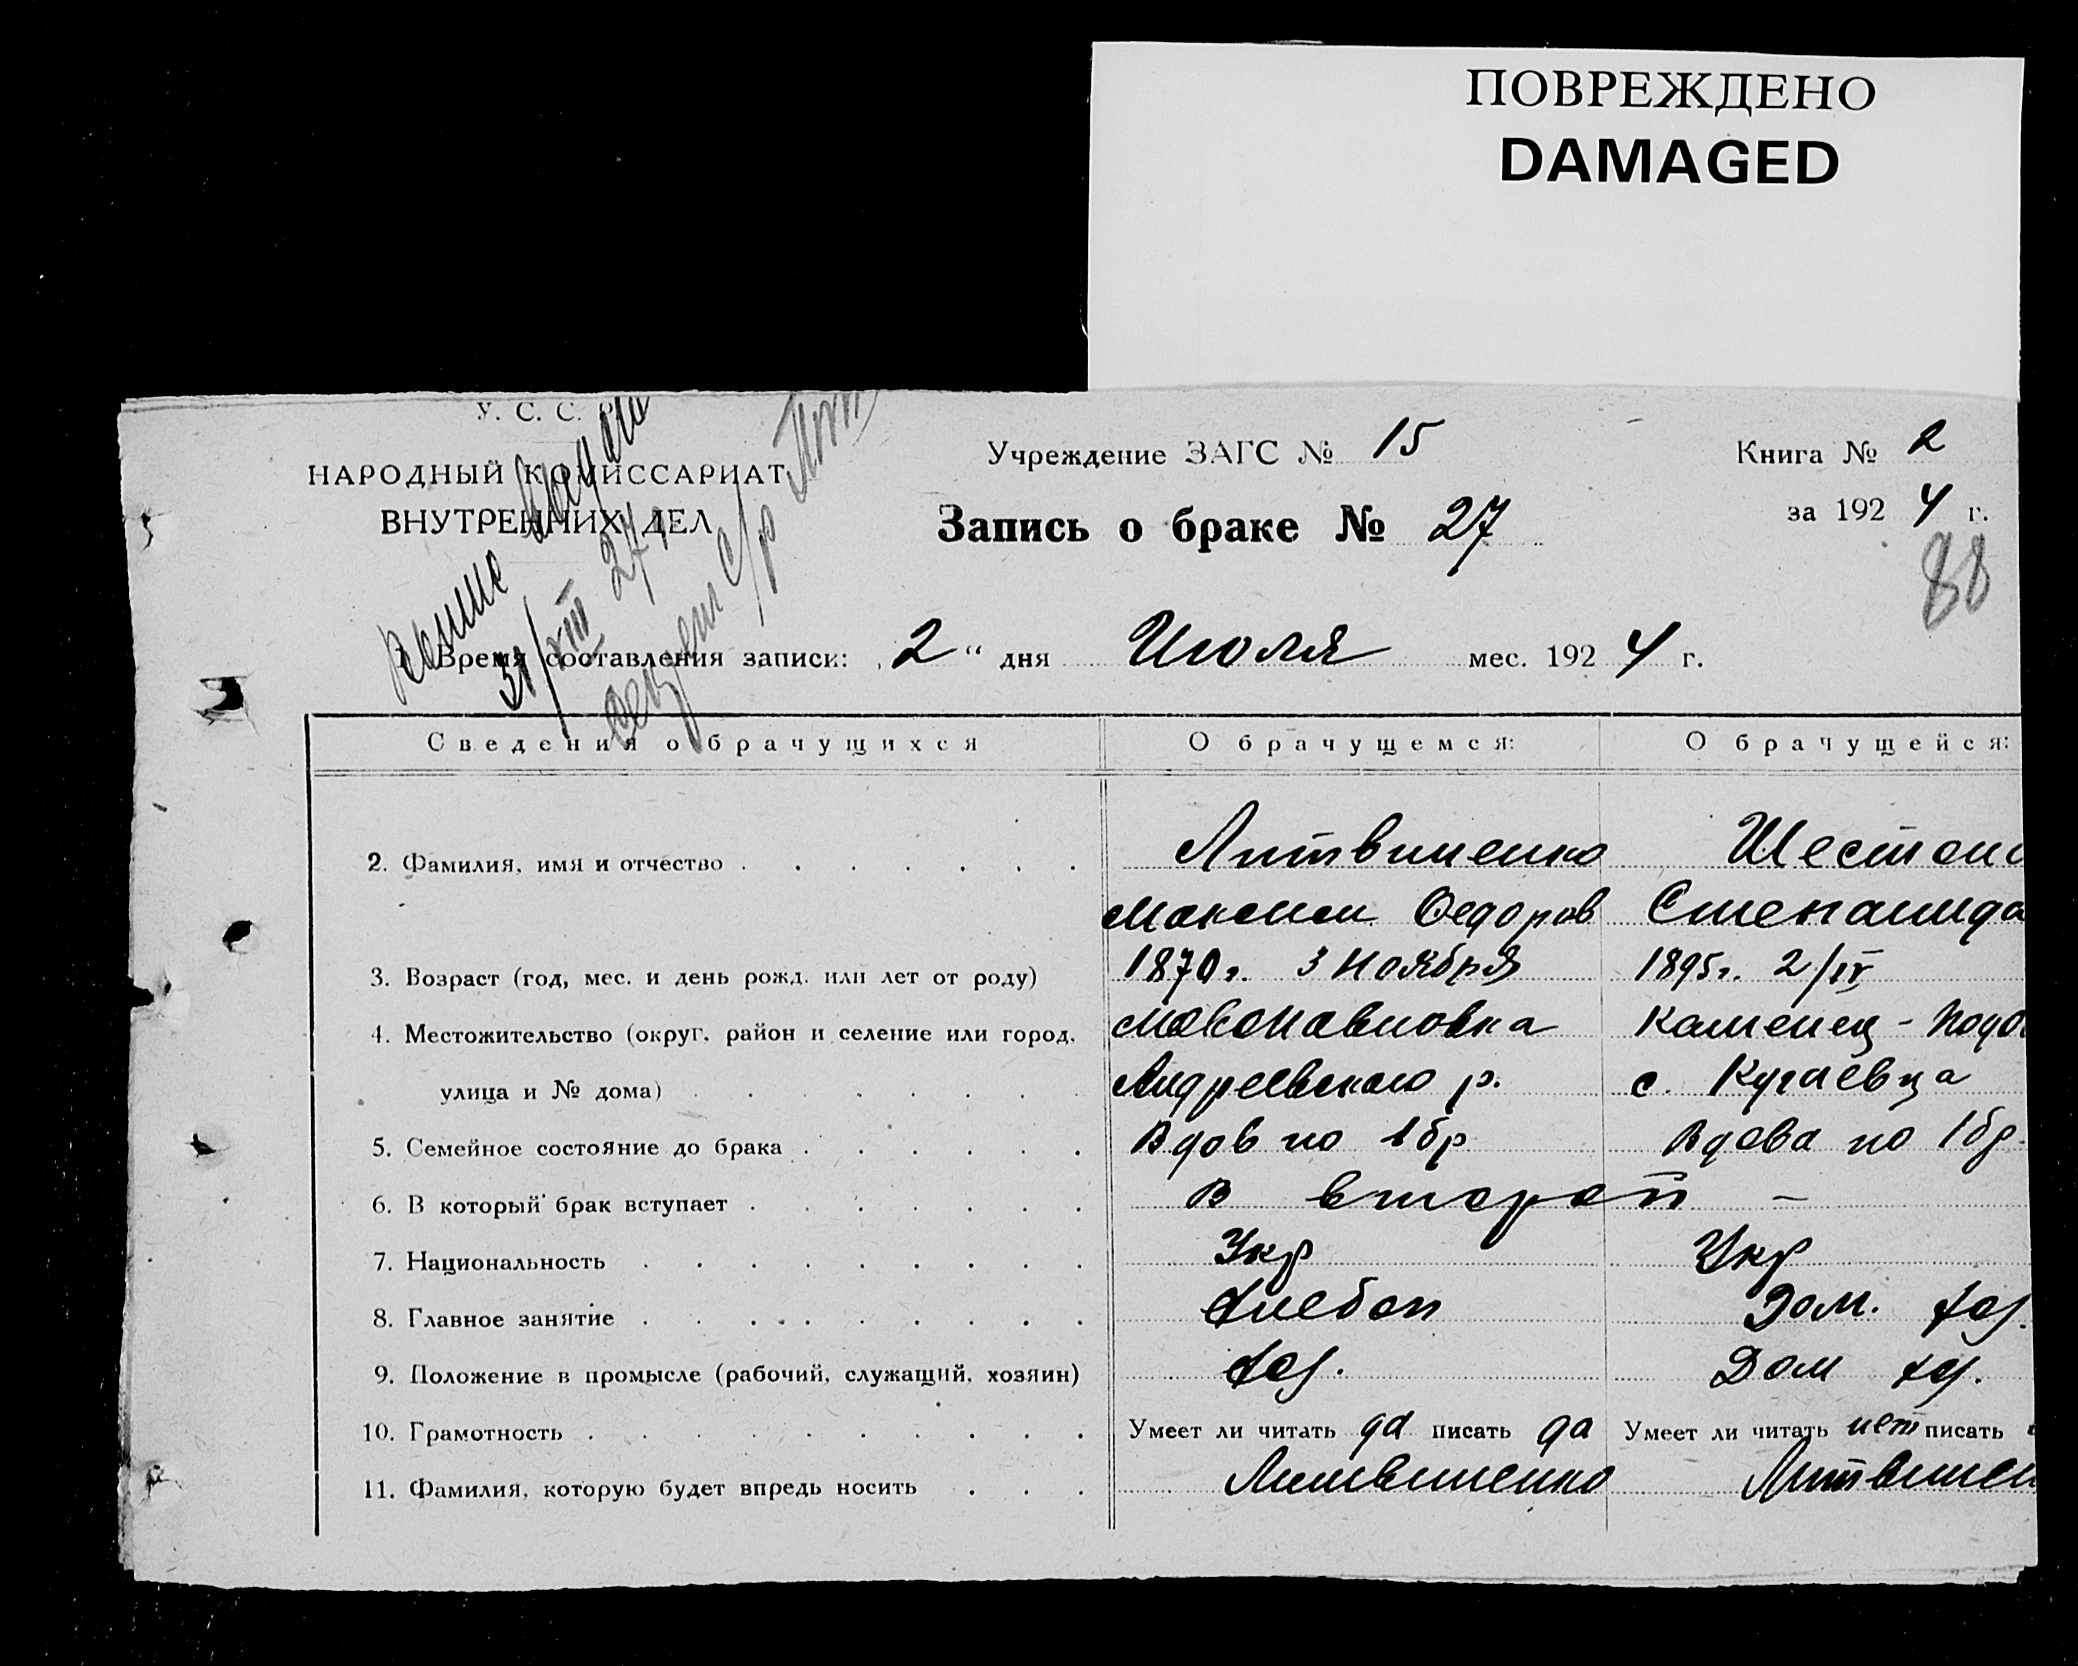 ПОВРЕЖДЕНО
DAMAGED
У. С. С. Р
НАРОДНЫЙ КОМИССАРИАТ
ВНУТРЕННИХ ДЕЛ
Учреждение ЗАГС № 15
Книга № 2
за 192 4 г.
Запись о браке № 27
88
1. Время составления записи: „2“ дня Июля мес. 192 4 г.
Сведения о брачущихся О брачущемся: О брачущейся:
2. Фамилия, имя и отчество Литвиненко
Максим Федоров Степанида
3. Возраст (год, мес. и день рожд. или лет от роду) 1870 г. 3 Ноября 1895 г. 2/IV
4. Местожительство (округ, район и селение или город, Новопавловка Каменец-Подо
улица и № дома) Андреевского р. с. Кугаевца
5. Семейное состояние до брака Вдов по 1 бр Вдова по 1 бр.
6. В который брак вступает В второй –
7. Национальность Укр Укр
8. Главное занятие Хлебоп Дом. хоз.
9. Положение в промысле (рабочий, служащий, хозяин) Хоз. Дом хоз.
10. Грамотность Умеет ли читать да писать да Умеет ли читать нет писать
11. Фамилия, которую будет впредь носить Литвиненко Литвинен